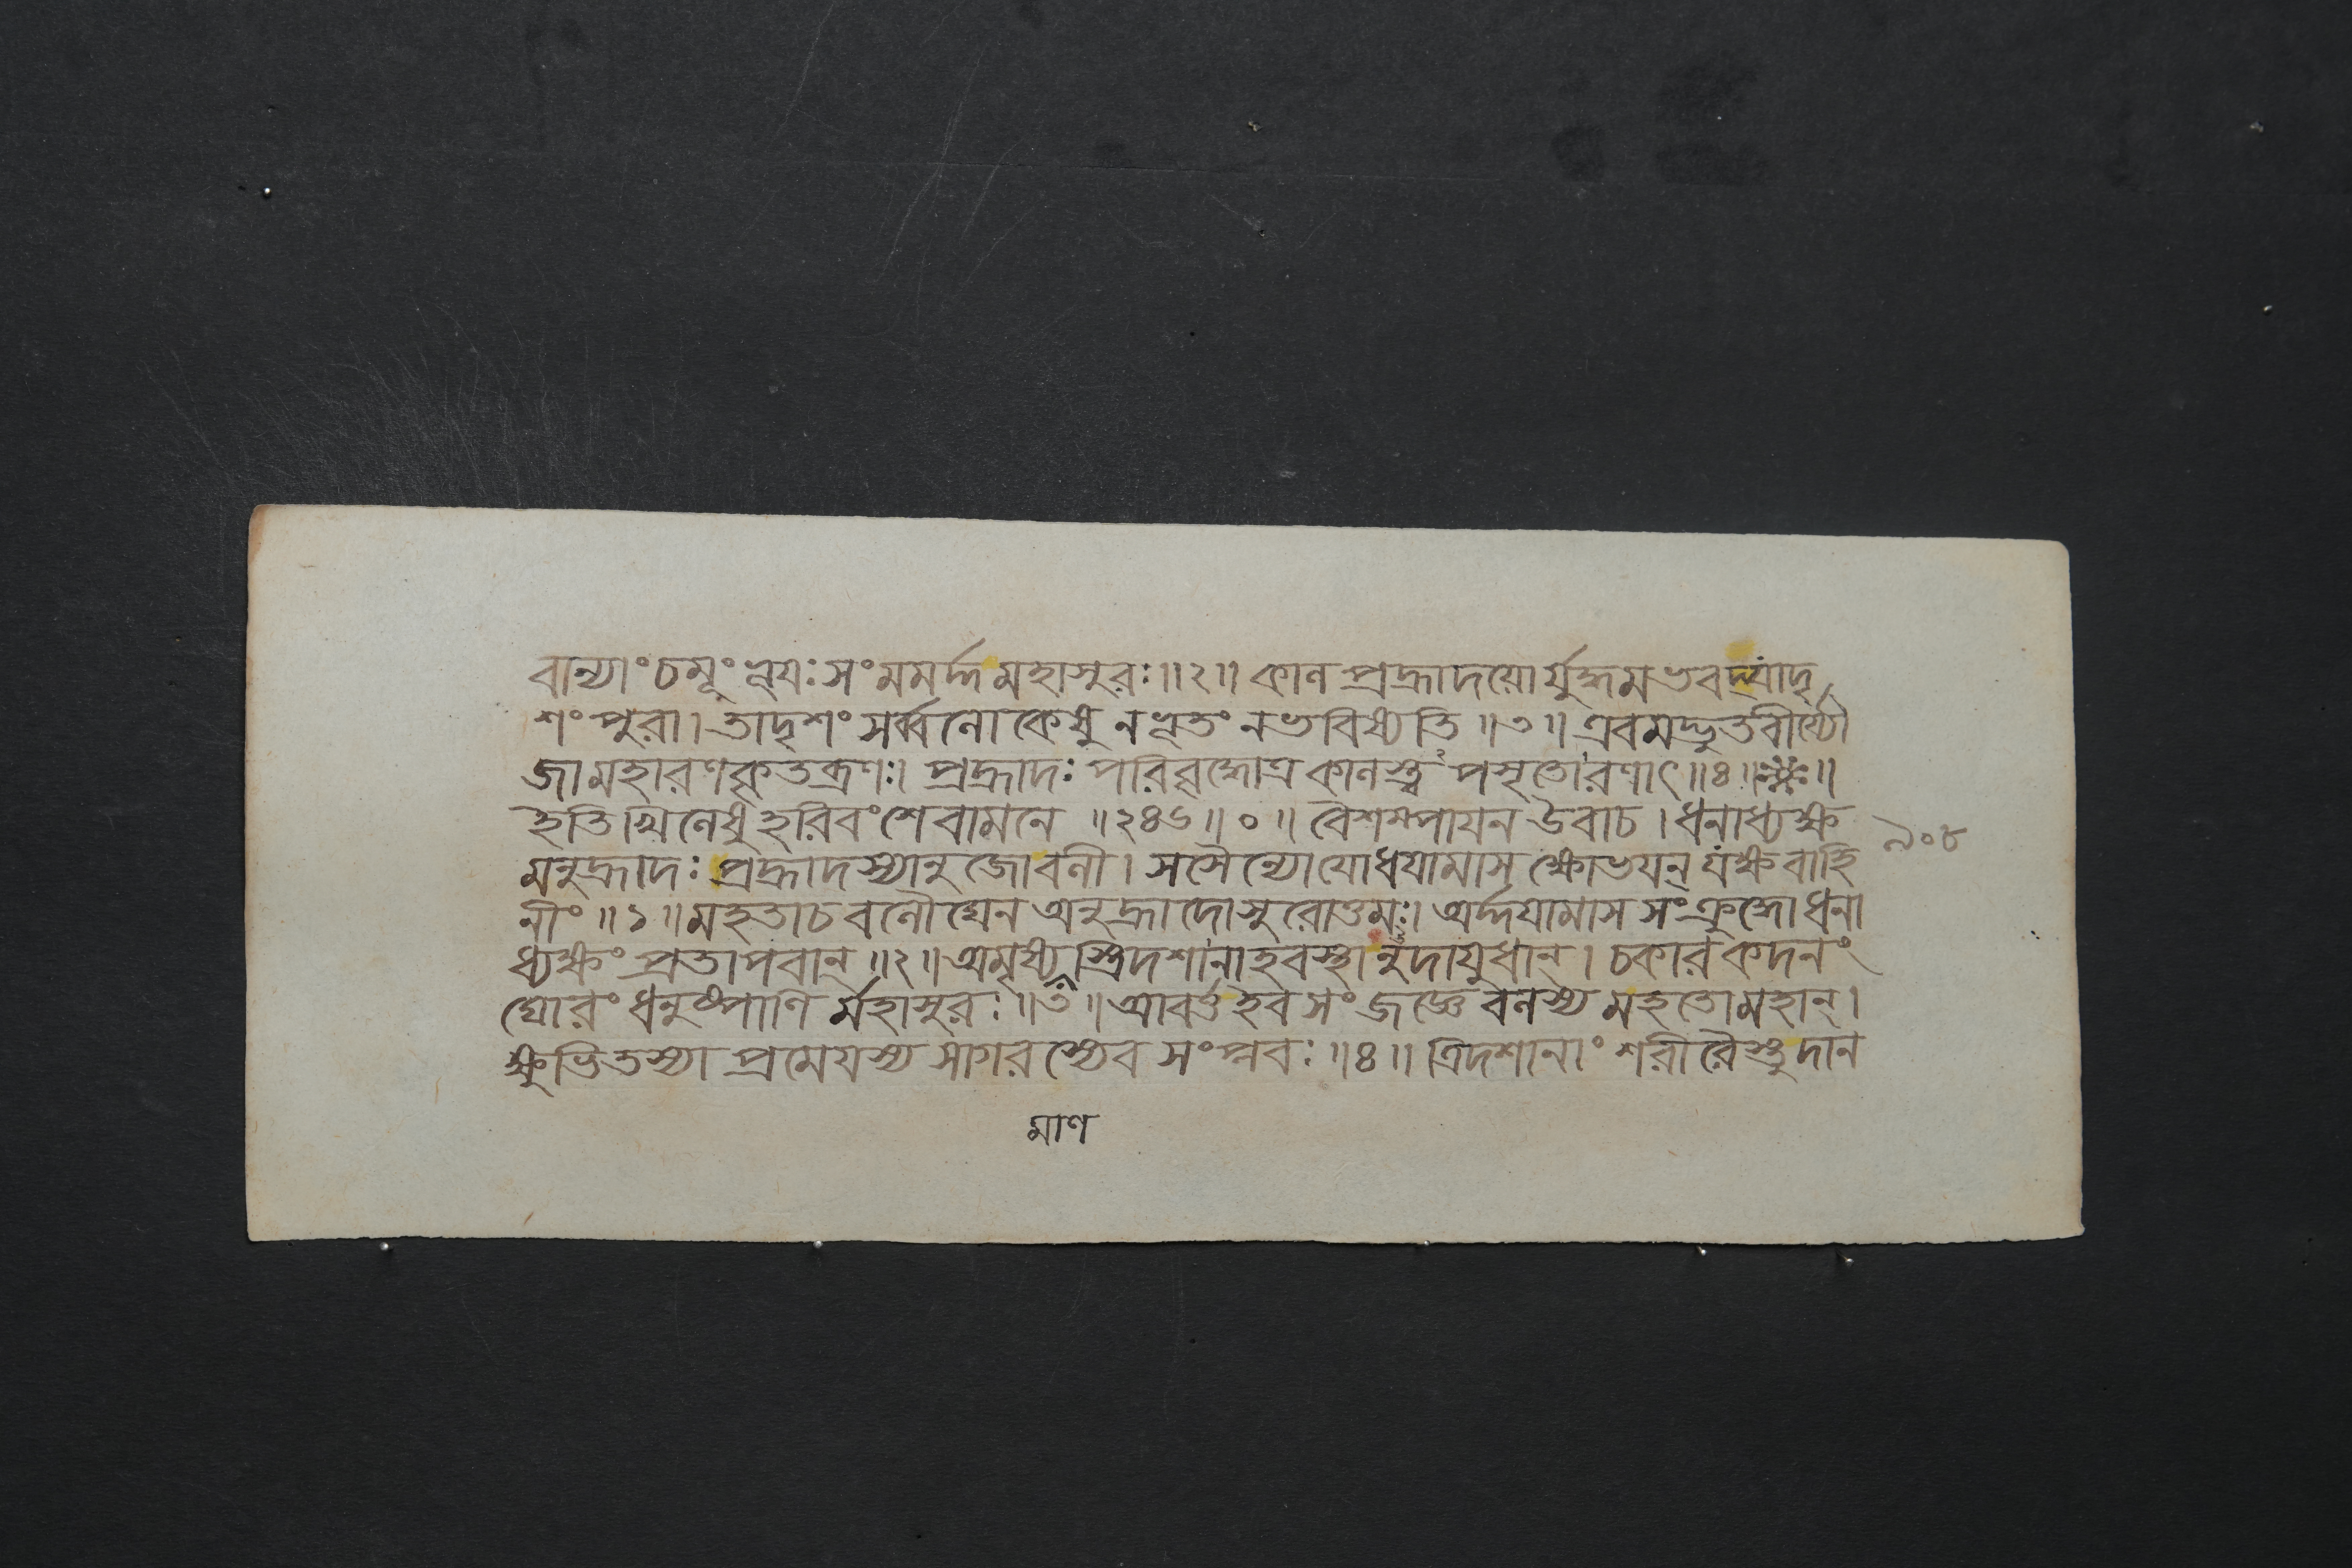 বান্যাং চমূং ভূযঃ সংমমর্দ্দ মহাসুরঃ ॥ ২ ॥ কাল প্রহ্রাদযো র্যুদ্ধমভবদ্যাদৃ
শং পুরা । তাদৃশং সর্ব্বলোকেষু নভূতং নভবিষ্যতি ॥ ৩ ॥ এবমদ্ভুতবীর্য্যৌ
জা মহারণকৃতব্রণঃ । প্রহ্রাদঃ পরিবৃদ্ধোত্র কালস্ত্বপসৃতোরণাৎ ॥ ৪ ॥
ইতি খিলেষু হরিবংশে বামনে ॥ ২৪৬ ॥ ০ ॥ বৈশম্পাযন উবাচ । ধনাধ্যক্ষ
৯০৮
মনুহ্রাদঃ প্রহ্রাদস্যানুজোবলী । সসৈন্যোযোধযামাস ক্ষোভযন্ যক্ষবাহি
নীং ॥ ১ ॥ মহতাচ বলৌঘেন অনুহ্রাদোসুরোত্তমঃ । অর্দ্দযামাস সংক্রুদ্ধো ধনা
ধ্যক্ষং প্রতাপবান্ ॥ ২ ॥ অমৃষ্যস্ত্রিদশানাহবস্থানুদাযুধান্ । চকার কদনং
ঘোরং ধনুষ্পাণি র্মহাসুরঃ ॥ ৩ ॥ আবর্ত্তইব সংজজ্ঞে বলস্য মহতোমহান্ ।
ক্ষুভিতস্যাপ্রমেযস্য সাগরস্যেব সংপ্লবঃ ॥ ৪ ॥ ত্রিদশানাং শরীরৈস্তু দান
মাণ